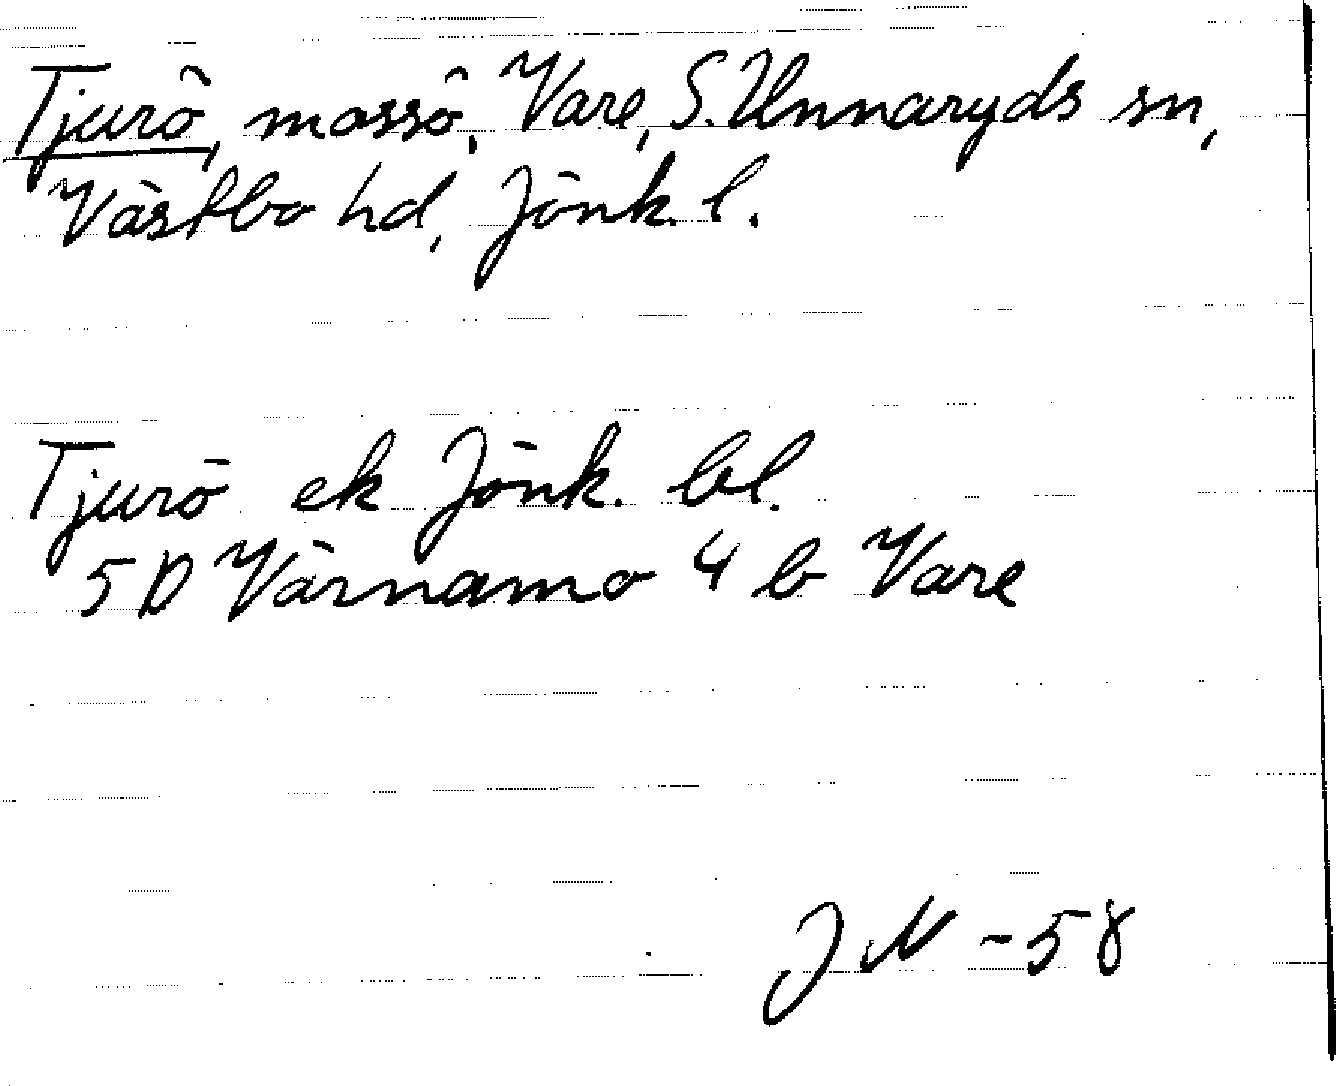 Tjurö, mossö, Vare, S. Unnaryds sn,
Västbo hd, Jönk. l.
Tjurö ek Jönk. bl.
5 D Värnamo 4 b Vare
JN -58